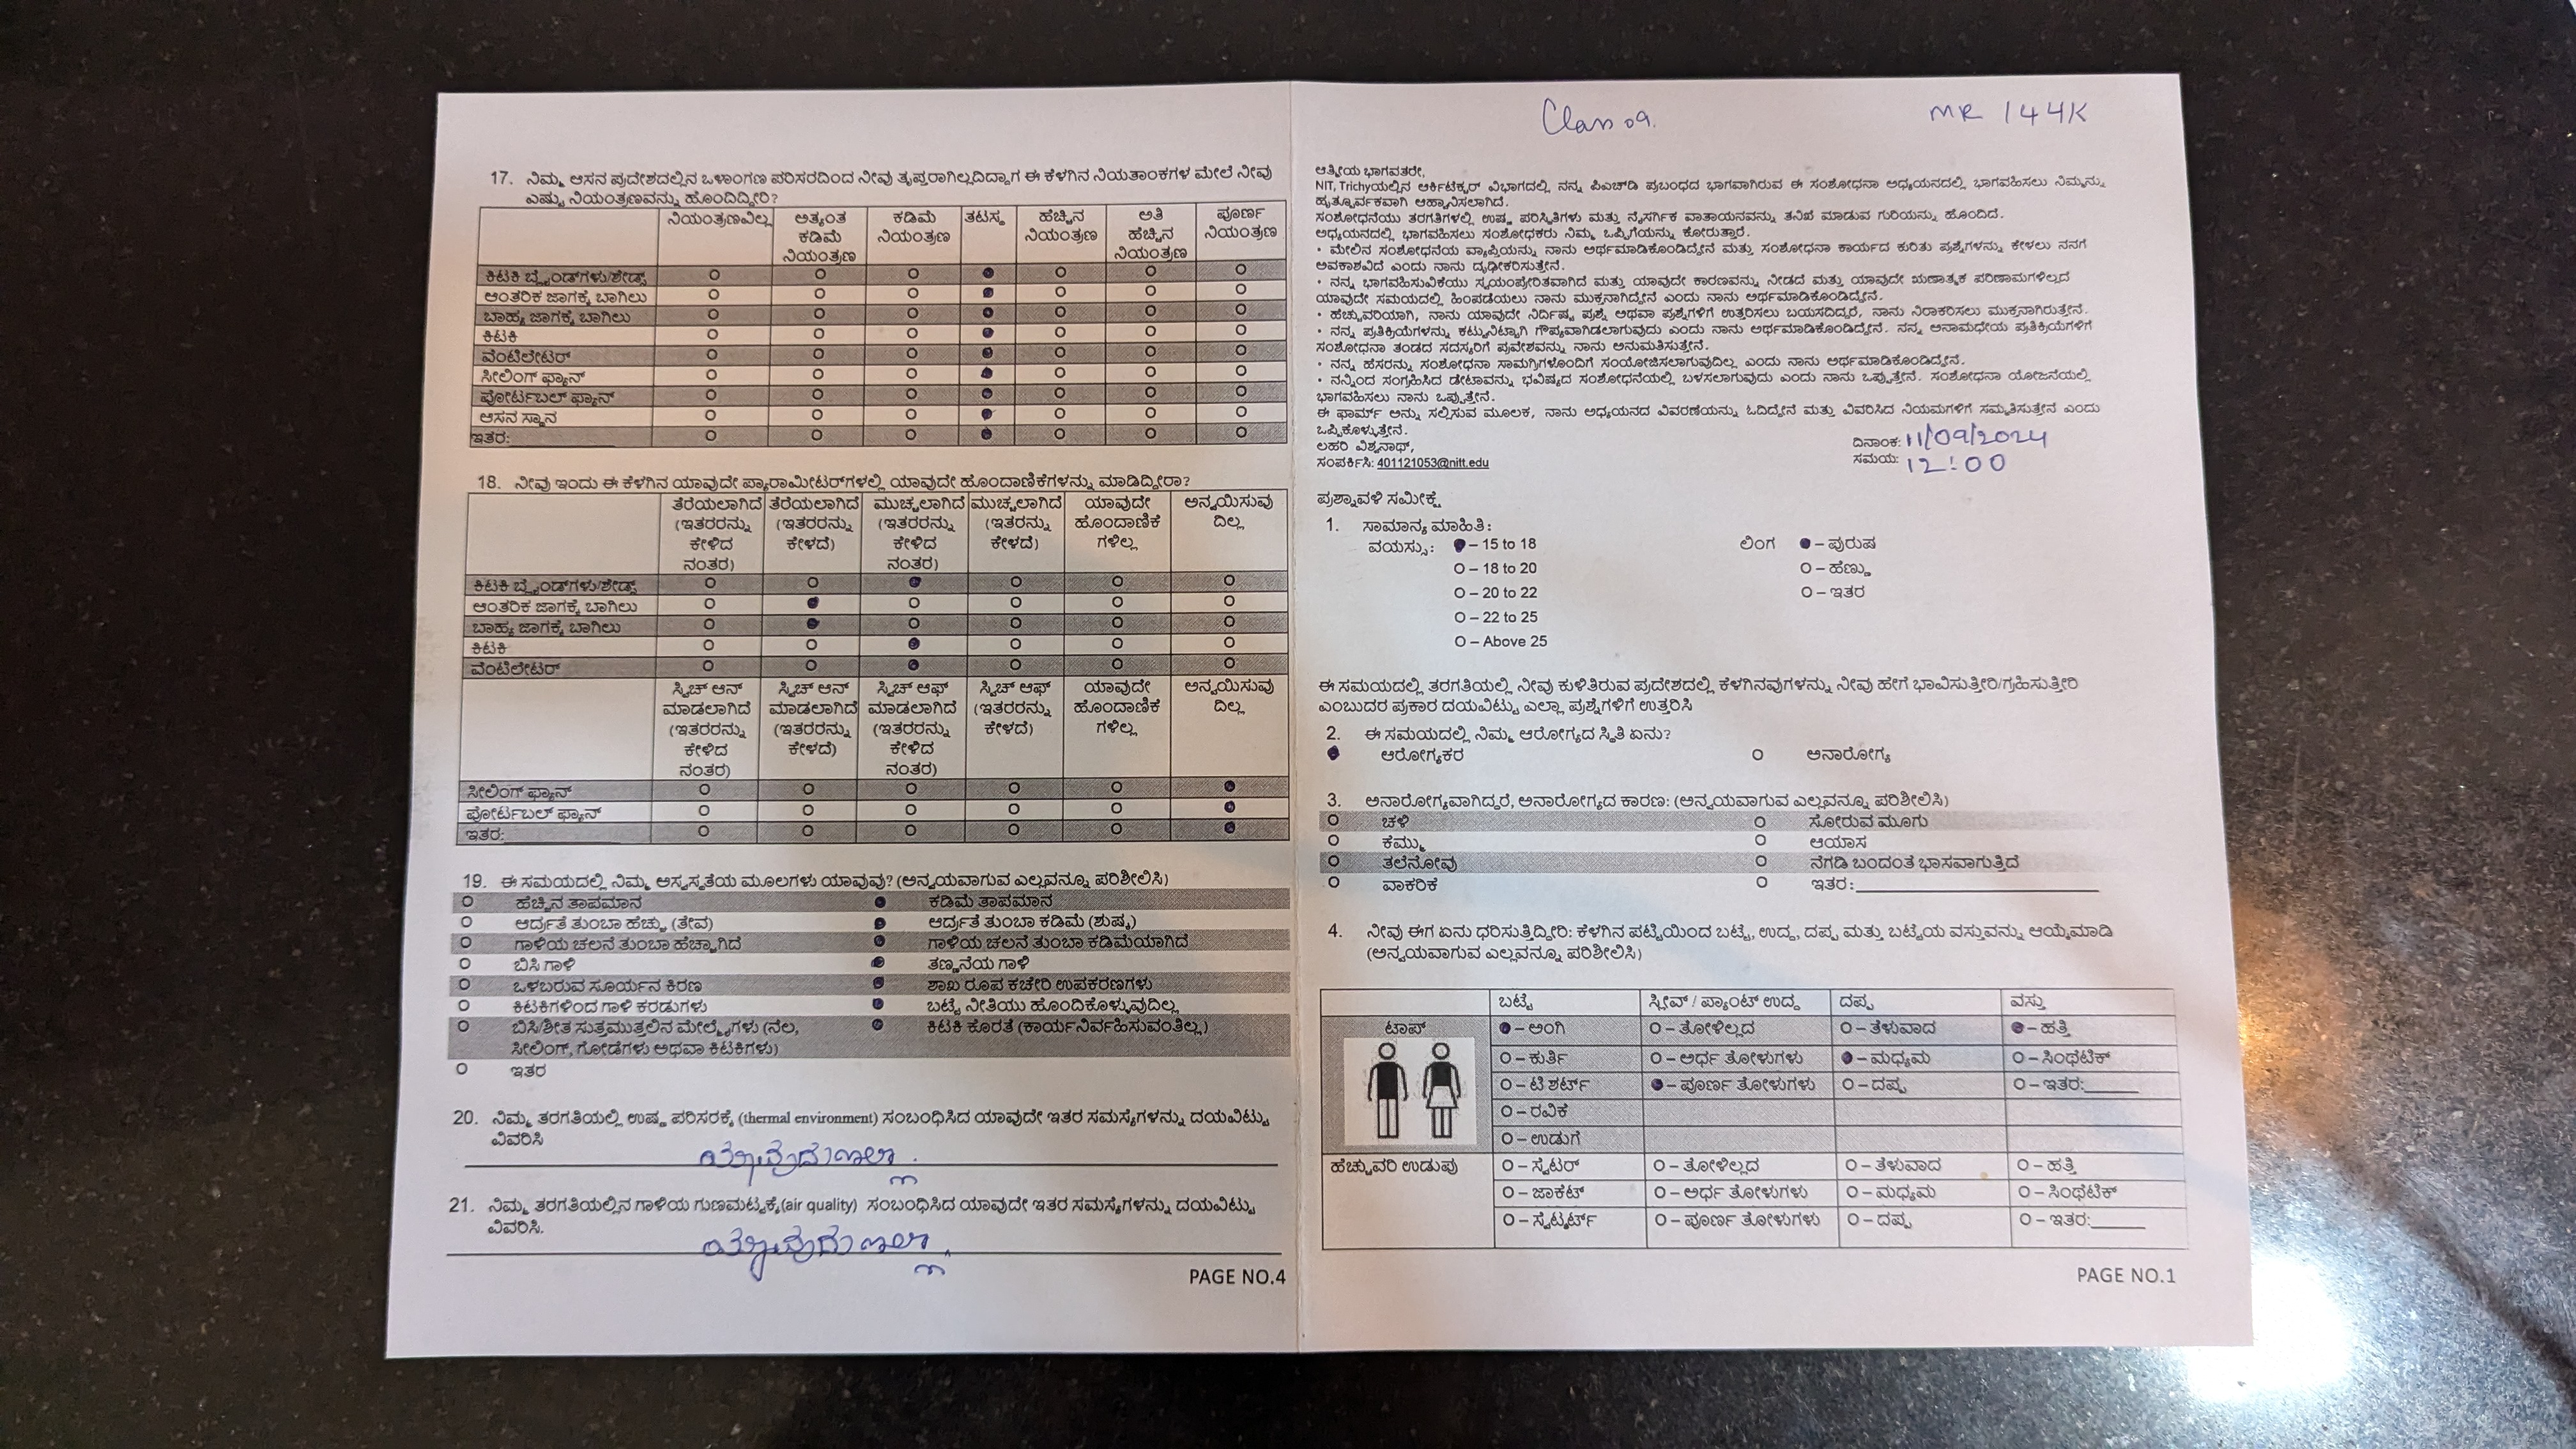 17. ನಿಮ್ಮ ಆಸನ ಪ್ರದೇಶದಲ್ಲಿನ ಒಳಾಂಗಣ ಪರಿಸರದಿಂದ ನೀವು ತೃಪ್ತರಾಗಿಲ್ಲದಿದ್ದಾಗ ಈ ಕೆಳಗಿನ ನಿಯತಾಂಕಗಳ ಮೇಲೆ ನೀವು
ಎಷ್ಟು ನಿಯಂತ್ರಣವನ್ನು ಹೊಂದಿದ್ದೀರಿ?
ನಿಯಂತ್ರಣವಿಲ್ಲ ಅತ್ಯಂತ ಕಡಿಮೆ ನಿಯಂತ್ರಣ ಕಡಿಮೆ ನಿಯಂತ್ರಣ ತಟಸ್ಥ ಹೆಚ್ಚಿನ ನಿಯಂತ್ರಣ ಅತಿ ಹೆಚ್ಚಿನ ನಿಯಂತ್ರಣ ಪೂರ್ಣ ನಿಯಂತ್ರಣ
ಕಿಟಕಿ ಬ್ಲೈಂಡ್‌ಗಳು/ಶೇಡ್ಸ್
ಆಂತರಿಕ ಜಾಗಕ್ಕೆ ಬಾಗಿಲು
ಬಾಹ್ಯ ಜಾಗಕ್ಕೆ ಬಾಗಿಲು
ಕಿಟಕಿ
ವೆಂಟಿಲೇಟರ್
ಸೀಲಿಂಗ್ ಫ್ಯಾನ್
ಪೋರ್ಟಬಲ್ ಫ್ಯಾನ್
ಆಸನ ಸ್ಥಾನ
ಇತರ:
18. ನೀವು ಇಂದು ಈ ಕೆಳಗಿನ ಯಾವುದೇ ಪ್ಯಾರಾಮೀಟರ್‌ಗಳಲ್ಲಿ ಯಾವುದೇ ಹೊಂದಾಣಿಕೆಗಳನ್ನು ಮಾಡಿದ್ದೀರಾ?
ತೆರೆಯಲಾಗಿದೆ (ಇತರರನ್ನು ಕೇಳಿದ ನಂತರ) ತೆರೆಯಲಾಗಿದೆ (ಇತರರನ್ನು ಕೇಳದೆ) ಮುಚ್ಚಲಾಗಿದೆ (ಇತರರನ್ನು ಕೇಳಿದ ನಂತರ) ಮುಚ್ಚಲಾಗಿದೆ (ಇತರರನ್ನು ಕೇಳದೆ) ಯಾವುದೇ ಹೊಂದಾಣಿಕೆ ಗಳಿಲ್ಲ ಅನ್ವಯಿಸುವು ದಿಲ್ಲ
ಕಿಟಕಿ ಬ್ಲೈಂಡ್‌ಗಳು/ಶೇಡ್ಸ್
ಆಂತರಿಕ ಜಾಗಕ್ಕೆ ಬಾಗಿಲು
ಬಾಹ್ಯ ಜಾಗಕ್ಕೆ ಬಾಗಿಲು
ಕಿಟಕಿ
ವೆಂಟಿಲೇಟರ್
ಸ್ವಿಚ್ ಆನ್ ಮಾಡಲಾಗಿದೆ (ಇತರರನ್ನು ಕೇಳಿದ ನಂತರ) ಸ್ವಿಚ್ ಆನ್ ಮಾಡಲಾಗಿದೆ (ಇತರರನ್ನು ಕೇಳದೆ) ಸ್ವಿಚ್ ಆಫ್ ಮಾಡಲಾಗಿದೆ (ಇತರರನ್ನು ಕೇಳಿದ ನಂತರ) ಸ್ವಿಚ್ ಆಫ್ (ಇತರರನ್ನು ಕೇಳದೆ) ಯಾವುದೇ ಹೊಂದಾಣಿಕೆ ಗಳಿಲ್ಲ ಅನ್ವಯಿಸುವು ದಿಲ್ಲ
ಸೀಲಿಂಗ್ ಫ್ಯಾನ್
ಪೋರ್ಟಬಲ್ ಫ್ಯಾನ್
ಇತರ:
19. ಈ ಸಮಯದಲ್ಲಿ ನಿಮ್ಮ ಅಸ್ವಸ್ಥತೆಯ ಮೂಲಗಳು ಯಾವುವು? (ಅನ್ವಯವಾಗುವ ಎಲ್ಲವನ್ನೂ ಪರಿಶೀಲಿಸಿ)
ಹೆಚ್ಚಿನ ತಾಪಮಾನ ಕಡಿಮೆ ತಾಪಮಾನ
ಆರ್ದ್ರತೆ ತುಂಬಾ ಹೆಚ್ಚು (ತೇವ) ಆರ್ದ್ರತೆ ತುಂಬಾ ಕಡಿಮೆ (ಶುಷ್ಕ)
ಗಾಳಿಯ ಚಲನೆ ತುಂಬಾ ಹೆಚ್ಚಾಗಿದೆ ಗಾಳಿಯ ಚಲನೆ ತುಂಬಾ ಕಡಿಮೆಯಾಗಿದೆ
ಬಿಸಿ ಗಾಳಿ ತಣ್ಣನೆಯ ಗಾಳಿ
ಒಳಬರುವ ಸೂರ್ಯನ ಕಿರಣ ಶಾಖ ರೂಪ ಕಚೇರಿ ಉಪಕರಣಗಳು
ಕಿಟಕಿಗಳಿಂದ ಗಾಳಿ ಕರಡುಗಳು ಬಟ್ಟೆ ನೀತಿಯು ಹೊಂದಿಕೊಳ್ಳುವುದಿಲ್ಲ
ಬಿಸಿ/ಶೀತ ಸುತ್ತಮುತ್ತಲಿನ ಮೇಲ್ಮೈಗಳು (ನೆಲ, ಕಿಟಕಿ ಕೊರತೆ (ಕಾರ್ಯನಿರ್ವಹಿಸುವಂತಿಲ್ಲ)
ಸೀಲಿಂಗ್, ಗೋಡೆಗಳು ಅಥವಾ ಕಿಟಕಿಗಳು)
ಇತರ
20. ನಿಮ್ಮ ತರಗತಿಯಲ್ಲಿ ಉಷ್ಣ ಪರಿಸರಕ್ಕೆ (thermal environment) ಸಂಬಂಧಿಸಿದ ಯಾವುದೇ ಇತರ ಸಮಸ್ಯೆಗಳನ್ನು ದಯವಿಟ್ಟು
ವಿವರಿಸಿ
ಯಾವುದುಇಲ್ಲಾ.
21. ನಿಮ್ಮ ತರಗತಿಯಲ್ಲಿನ ಗಾಳಿಯ ಗುಣಮಟ್ಟಕ್ಕೆ(air quality) ಸಂಬಂಧಿಸಿದ ಯಾವುದೇ ಇತರ ಸಮಸ್ಯೆಗಳನ್ನು ದಯವಿಟ್ಟು
ವಿವರಿಸಿ.
ಯಾವುದು ಇಲ್ಲಾ.
PAGE NO.4
Class 09. MR 144K
ಆತ್ಮೀಯ ಭಾಗವತರೇ,
NIT, Trichyಯಲ್ಲಿನ ಆರ್ಕಿಟೆಕ್ಚರ್ ವಿಭಾಗದಲ್ಲಿ ನನ್ನ ಪಿಎಚ್‌ಡಿ ಪ್ರಬಂಧದ ಭಾಗವಾಗಿರುವ ಈ ಸಂಶೋಧನಾ ಅಧ್ಯಯನದಲ್ಲಿ ಭಾಗವಹಿಸಲು ನಿಮ್ಮನ್ನು
ಹೃತ್ಪೂರ್ವಕವಾಗಿ ಆಹ್ವಾನಿಸಲಾಗಿದೆ.
ಸಂಶೋಧನೆಯು ತರಗತಿಗಳಲ್ಲಿ ಉಷ್ಣ ಪರಿಸ್ಥಿತಿಗಳು ಮತ್ತು ನೈಸರ್ಗಿಕ ವಾತಾಯನವನ್ನು ತನಿಖೆ ಮಾಡುವ ಗುರಿಯನ್ನು ಹೊಂದಿದೆ.
ಅಧ್ಯಯನದಲ್ಲಿ ಭಾಗವಹಿಸಲು ಸಂಶೋಧಕರು ನಿಮ್ಮ ಒಪ್ಪಿಗೆಯನ್ನು ಕೋರುತ್ತಾರೆ.
• ಮೇಲಿನ ಸಂಶೋಧನೆಯ ವ್ಯಾಪ್ತಿಯನ್ನು ನಾನು ಅರ್ಥಮಾಡಿಕೊಂಡಿದ್ದೇನೆ ಮತ್ತು ಸಂಶೋಧನಾ ಕಾರ್ಯದ ಕುರಿತು ಪ್ರಶ್ನೆಗಳನ್ನು ಕೇಳಲು ನನಗೆ
ಅವಕಾಶವಿದೆ ಎಂದು ನಾನು ದೃಢೀಕರಿಸುತ್ತೇನೆ.
• ನನ್ನ ಭಾಗವಹಿಸುವಿಕೆಯು ಸ್ವಯಂಪ್ರೇರಿತವಾಗಿದೆ ಮತ್ತು ಯಾವುದೇ ಕಾರಣವನ್ನು ನೀಡದೆ ಮತ್ತು ಯಾವುದೇ ಋಣಾತ್ಮಕ ಪರಿಣಾಮಗಳಿಲ್ಲದೆ
ಯಾವುದೇ ಸಮಯದಲ್ಲಿ ಹಿಂಪಡೆಯಲು ನಾನು ಮುಕ್ತನಾಗಿದ್ದೇನೆ ಎಂದು ನಾನು ಅರ್ಥಮಾಡಿಕೊಂಡಿದ್ದೇನೆ.
• ಹೆಚ್ಚುವರಿಯಾಗಿ, ನಾನು ಯಾವುದೇ ನಿರ್ದಿಷ್ಟ ಪ್ರಶ್ನೆ ಅಥವಾ ಪ್ರಶ್ನೆಗಳಿಗೆ ಉತ್ತರಿಸಲು ಬಯಸದಿದ್ದರೆ, ನಾನು ನಿರಾಕರಿಸಲು ಮುಕ್ತನಾಗಿರುತ್ತೇನೆ.
• ನನ್ನ ಪ್ರತಿಕ್ರಿಯೆಗಳನ್ನು ಕಟ್ಟುನಿಟ್ಟಾಗಿ ಗೌಪ್ಯವಾಗಿಡಲಾಗುವುದು ಎಂದು ನಾನು ಅರ್ಥಮಾಡಿಕೊಂಡಿದ್ದೇನೆ. ನನ್ನ ಅನಾಮಧೇಯ ಪ್ರತಿಕ್ರಿಯೆಗಳಿಗೆ
ಸಂಶೋಧನಾ ತಂಡದ ಸದಸ್ಯರಿಗೆ ಪ್ರವೇಶವನ್ನು ನಾನು ಅನುಮತಿಸುತ್ತೇನೆ.
• ನನ್ನ ಹೆಸರನ್ನು ಸಂಶೋಧನಾ ಸಾಮಗ್ರಿಗಳೊಂದಿಗೆ ಸಂಯೋಜಿಸಲಾಗುವುದಿಲ್ಲ ಎಂದು ನಾನು ಅರ್ಥಮಾಡಿಕೊಂಡಿದ್ದೇನೆ.
• ನನ್ನಿಂದ ಸಂಗ್ರಹಿಸಿದ ಡೇಟಾವನ್ನು ಭವಿಷ್ಯದ ಸಂಶೋಧನೆಯಲ್ಲಿ ಬಳಸಲಾಗುವುದು ಎಂದು ನಾನು ಒಪ್ಪುತ್ತೇನೆ. ಸಂಶೋಧನಾ ಯೋಜನೆಯಲ್ಲಿ
ಭಾಗವಹಿಸಲು ನಾನು ಒಪ್ಪುತ್ತೇನೆ.
ಈ ಫಾರ್ಮ್ ಅನ್ನು ಸಲ್ಲಿಸುವ ಮೂಲಕ, ನಾನು ಅಧ್ಯಯನದ ವಿವರಣೆಯನ್ನು ಓದಿದ್ದೇನೆ ಮತ್ತು ವಿವರಿಸಿದ ನಿಯಮಗಳಿಗೆ ಸಮ್ಮತಿಸುತ್ತೇನೆ ಎಂದು
ಒಪ್ಪಿಕೊಳ್ಳುತ್ತೇನೆ.
ಲಹರಿ ವಿಶ್ವನಾಥ್, ದಿನಾಂಕ: 11/09/2024
ಸಂಪರ್ಕಿಸಿ: 401121053@nitt.edu ಸಮಯ: 12:00
ಪ್ರಶ್ನಾವಳಿ ಸಮೀಕ್ಷೆ
1. ಸಾಮಾನ್ಯ ಮಾಹಿತಿ:
ವಯಸ್ಸು: – 15 to 18 ಲಿಂಗ – ಪುರುಷ
O – 18 to 20 O – ಹೆಣ್ಣು
O – 20 to 22 O – ಇತರ
O – 22 to 25
O – Above 25
ಈ ಸಮಯದಲ್ಲಿ ತರಗತಿಯಲ್ಲಿ ನೀವು ಕುಳಿತಿರುವ ಪ್ರದೇಶದಲ್ಲಿ ಕೆಳಗಿನವುಗಳನ್ನು ನೀವು ಹೇಗೆ ಭಾವಿಸುತ್ತೀರಿ/ಗ್ರಹಿಸುತ್ತೀರಿ
ಎಂಬುದರ ಪ್ರಕಾರ ದಯವಿಟ್ಟು ಎಲ್ಲಾ ಪ್ರಶ್ನೆಗಳಿಗೆ ಉತ್ತರಿಸಿ
2. ಈ ಸಮಯದಲ್ಲಿ ನಿಮ್ಮ ಆರೋಗ್ಯದ ಸ್ಥಿತಿ ಏನು?
ಆರೋಗ್ಯಕರ O ಅನಾರೋಗ್ಯ
3. ಅನಾರೋಗ್ಯವಾಗಿದ್ದರೆ, ಅನಾರೋಗ್ಯದ ಕಾರಣ: (ಅನ್ವಯವಾಗುವ ಎಲ್ಲವನ್ನೂ ಪರಿಶೀಲಿಸಿ)
O ಚಳಿ O ಸೋರುವ ಮೂಗು
O ಕೆಮ್ಮು O ಆಯಾಸ
O ತಲೆನೋವು O ನೆಗಡಿ ಬಂದಂತೆ ಭಾಸವಾಗುತ್ತಿದೆ
O ವಾಕರಿಕೆ O ಇತರ:
4. ನೀವು ಈಗ ಏನು ಧರಿಸುತ್ತಿದ್ದೀರಿ: ಕೆಳಗಿನ ಪಟ್ಟಿಯಿಂದ ಬಟ್ಟೆ, ಉದ್ದ, ದಪ್ಪ ಮತ್ತು ಬಟ್ಟೆಯ ವಸ್ತುವನ್ನು ಆಯ್ಕೆಮಾಡಿ
(ಅನ್ವಯವಾಗುವ ಎಲ್ಲವನ್ನೂ ಪರಿಶೀಲಿಸಿ)
ಬಟ್ಟೆ ಸ್ಲೀವ್ / ಪ್ಯಾಂಟ್ ಉದ್ದ ದಪ್ಪ ವಸ್ತು
ಟಾಪ್ – ಅಂಗಿ O – ತೋಳಿಲ್ಲದ O – ತೆಳುವಾದ – ಹತ್ತಿ
O – ಕುರ್ತಿ O – ಅರ್ಧ ತೋಳುಗಳು – ಮಧ್ಯಮ O – ಸಿಂಥೆಟಿಕ್
O – ಟಿ ಶರ್ಟ್ – ಪೂರ್ಣ ತೋಳುಗಳು O – ದಪ್ಪ O – ಇತರ:
O – ರವಿಕೆ
O – ಉಡುಗೆ
ಹೆಚ್ಚುವರಿ ಉಡುಪು O – ಸ್ವೆಟರ್ O – ತೋಳಿಲ್ಲದ O – ತೆಳುವಾದ O – ಹತ್ತಿ
O – ಜಾಕೆಟ್ O – ಅರ್ಧ ತೋಳುಗಳು O – ಮಧ್ಯಮ O – ಸಿಂಥೆಟಿಕ್
O – ಸ್ವೆಟ್ಶರ್ಟ್ O – ಪೂರ್ಣ ತೋಳುಗಳು O – ದಪ್ಪ O – ಇತರ:
PAGE NO.1